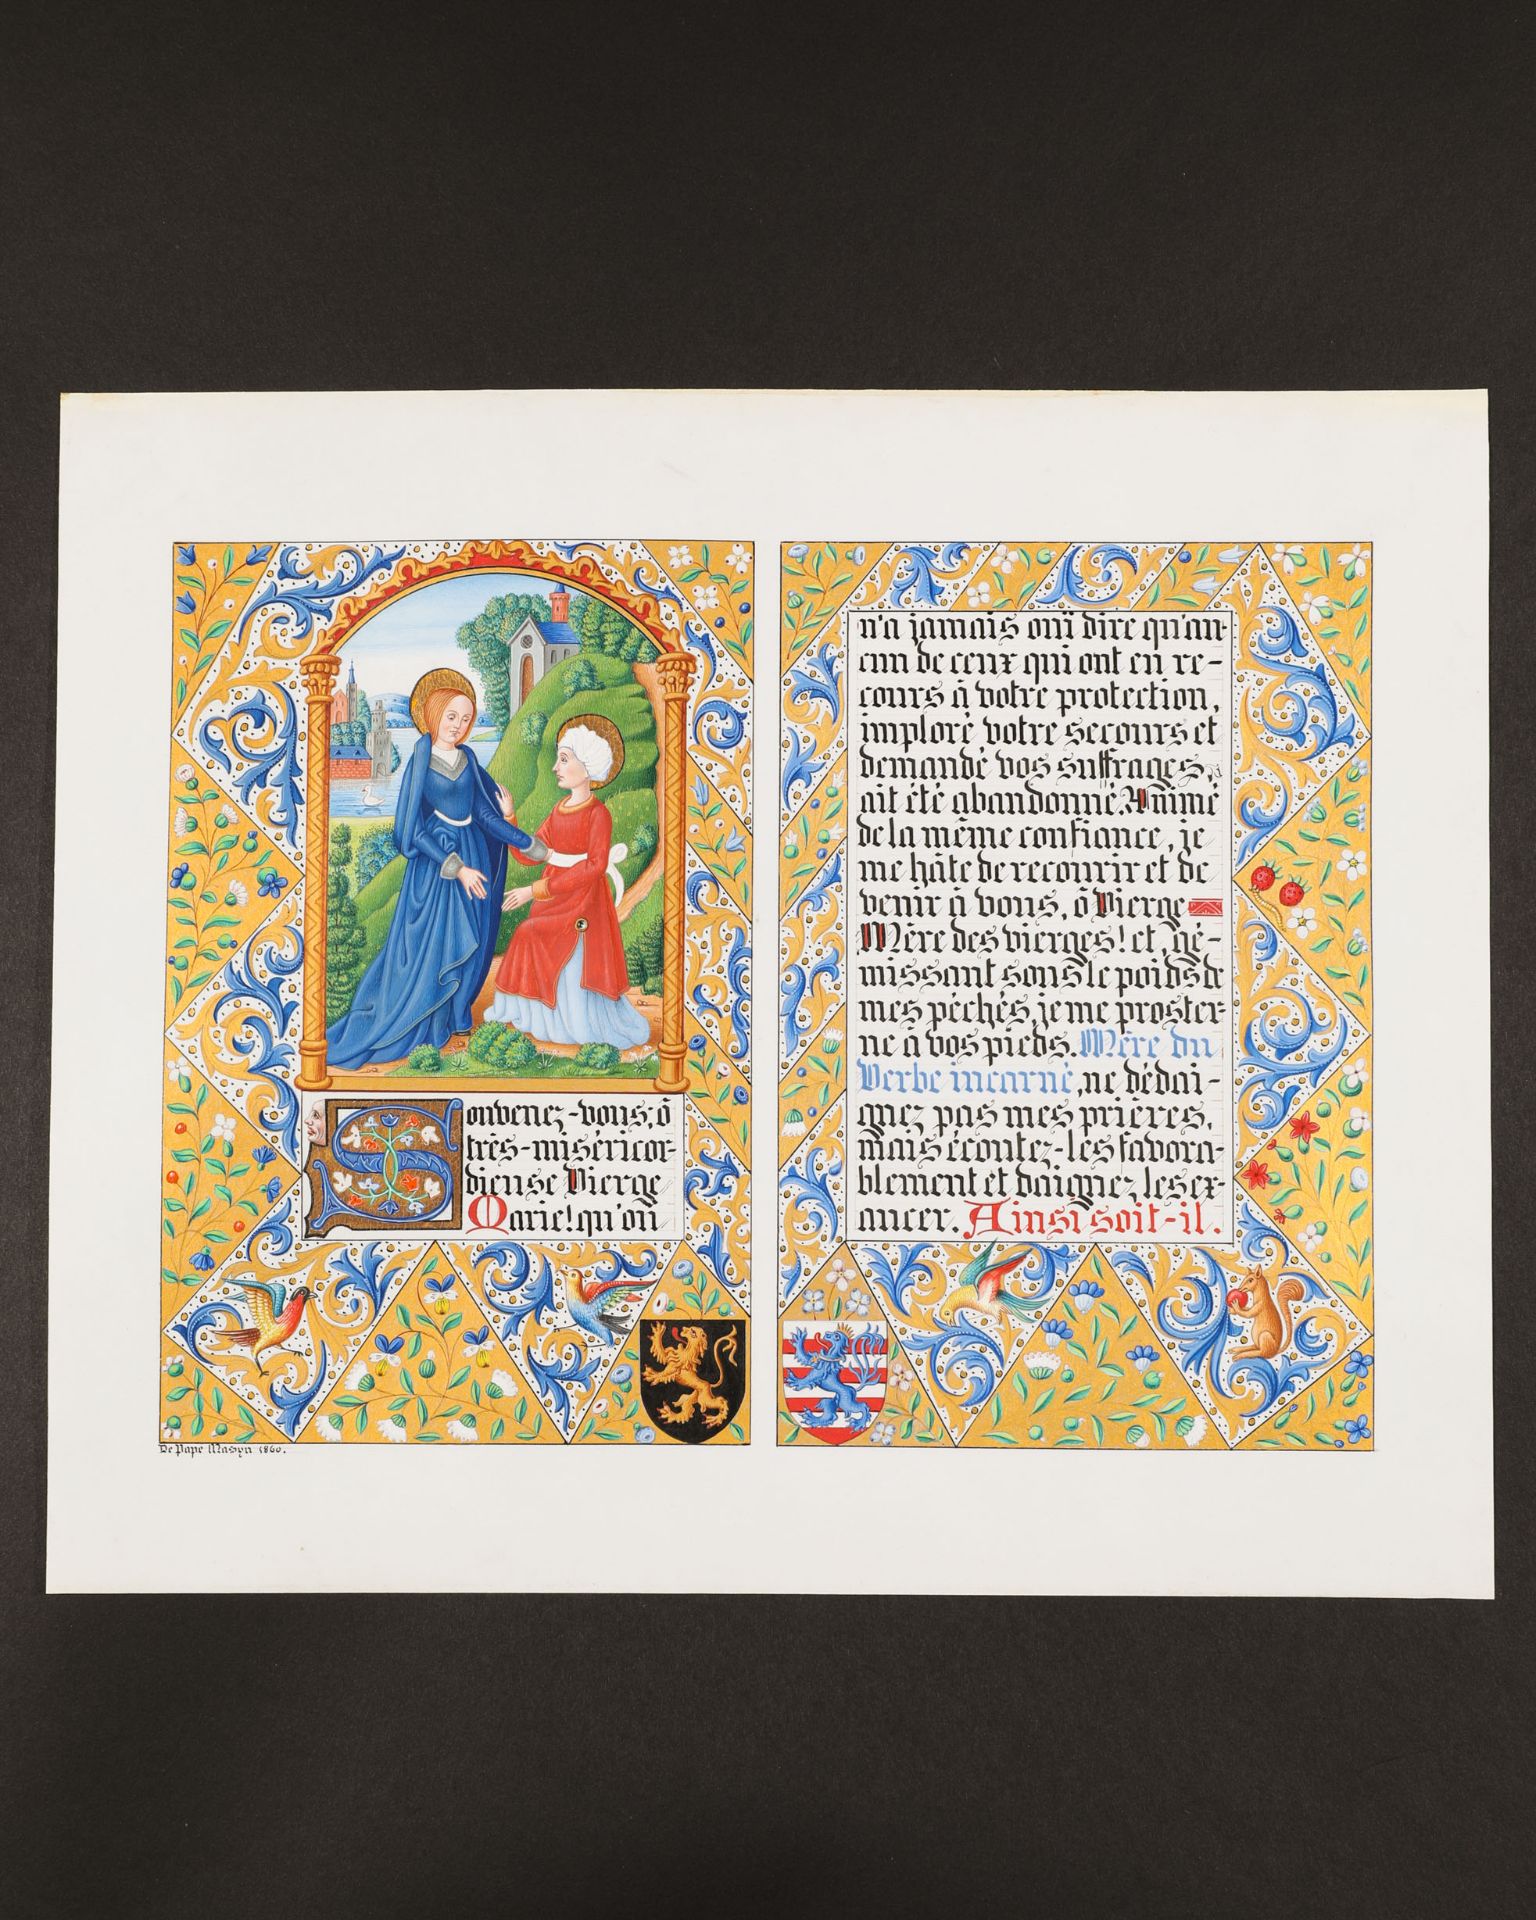 Souvenez-vous, ô
très-miséricor-
dieuse Vierge
Marie! qu'on
De Pape Masyn 1860.
n'a jamais ouï dire qu'au-
cun de ceux qui ont eu re-
cours à votre protection,
imploré votre secours et
demandé vos suffrages,
ait été abandonné. Animé
de la même confiance, je
me hâte de recourir et de
venir à vous, ô Vierge
Mère des vierges! et, gé-
missant sous le poids de
mes péchés, je me proster-
ne à vos pieds. Mère du
Verbe incarné, ne dédai-
gnez pas mes prières,
mais écoutez-les favora-
blement et daignez les ex-
aucer. Ainsi soit-il.